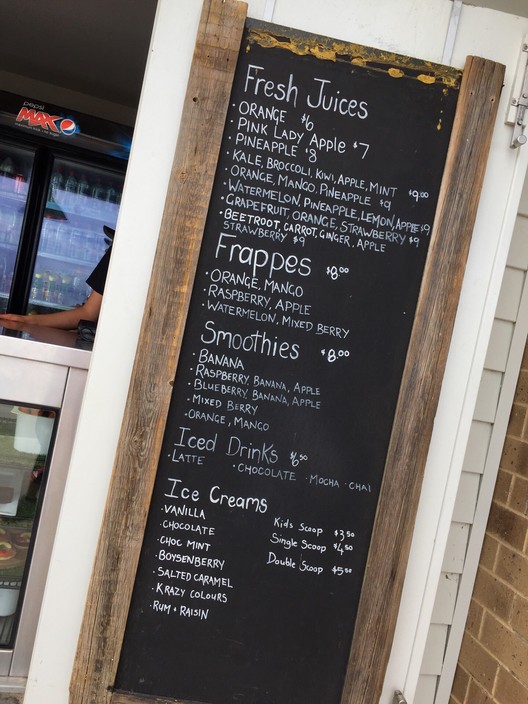 pepsi
MAX
Fresh Juices
· ORANGE $6
· PINK LADY Apple $7
· PINEAPPLE $8
· KALE, BROCCOLI, KIWI, APPLE, MINT $9.00
· ORANGE, MANGO, PINEAPPLE $9
· WATERMELON, PINEAPPLE, LEMON, APPLE $9
· GRAPEFRUIT, ORANGE, STRAWBERRY $9
· BEETROOT, CARROT, GINGER, APPLE
STRAWBERRY $9
Frappes $8.00
· ORANGE, MANGO
· RASPBERRY, APPLE
· WATERMELON, MIXED BERRY
Smoothies $8.00
· BANANA
· RASPBERRY, BANANA, APPLE
· BLUEBERRY, BANANA, APPLE
· MIXED BERRY
· ORANGE, MANGO
Iced Drinks $6.50
· LATTE · CHOCOLATE · MOCHA · CHAI
Ice Creams
· VANILLA
· CHOCOLATE
· CHOC MINT
· BOYSENBERRY
· SALTED CARAMEL
· KRAZY COLOURS
· RUM + RAISIN
Kids Scoop $3.50
Single Scoop $4.50
Double Scoop $5.50